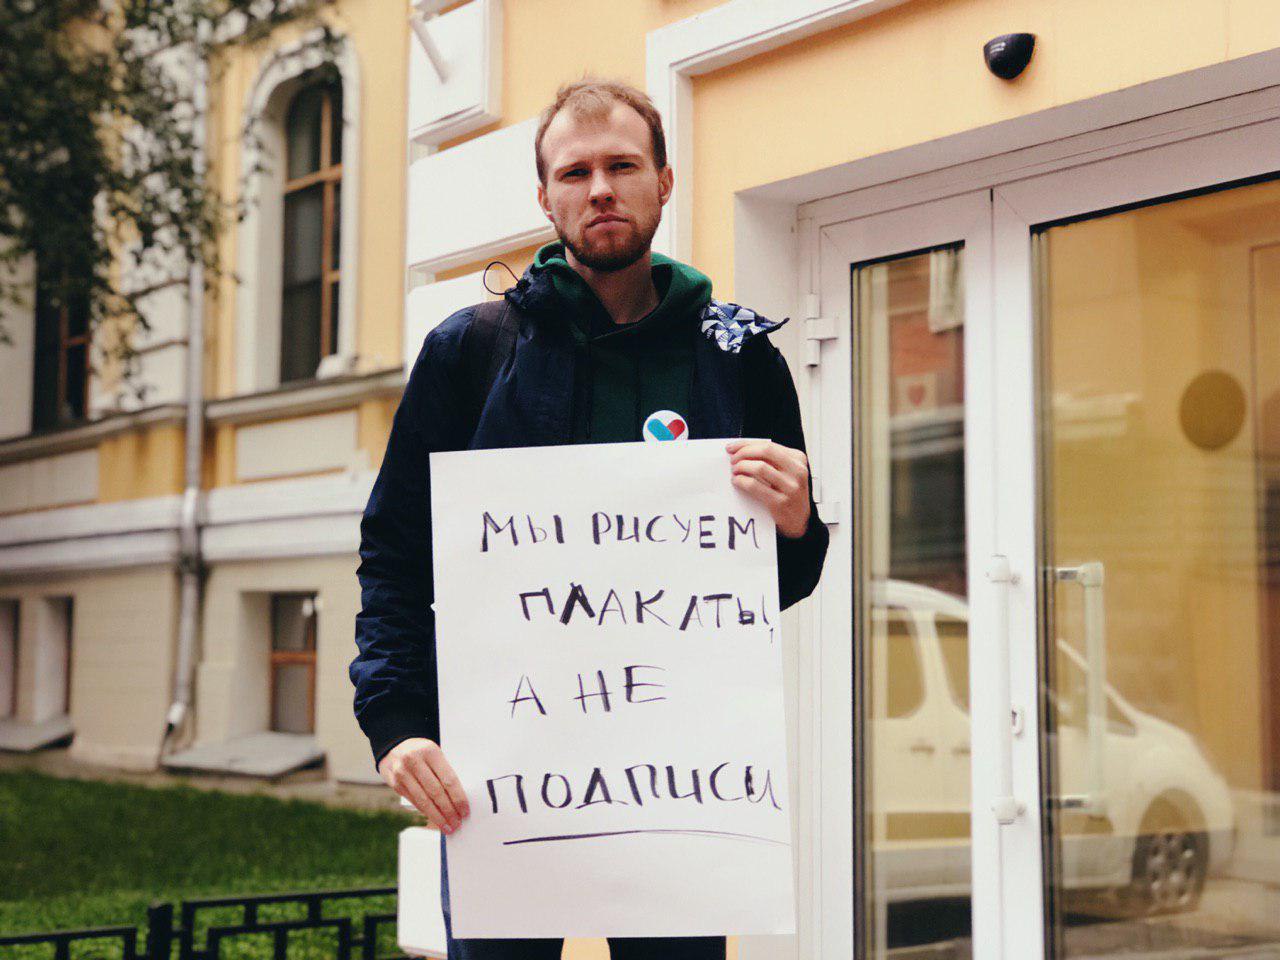 МЫ РИСУЕМ
ПЛАКАТЫ,
А НЕ
ПОДПИСИ